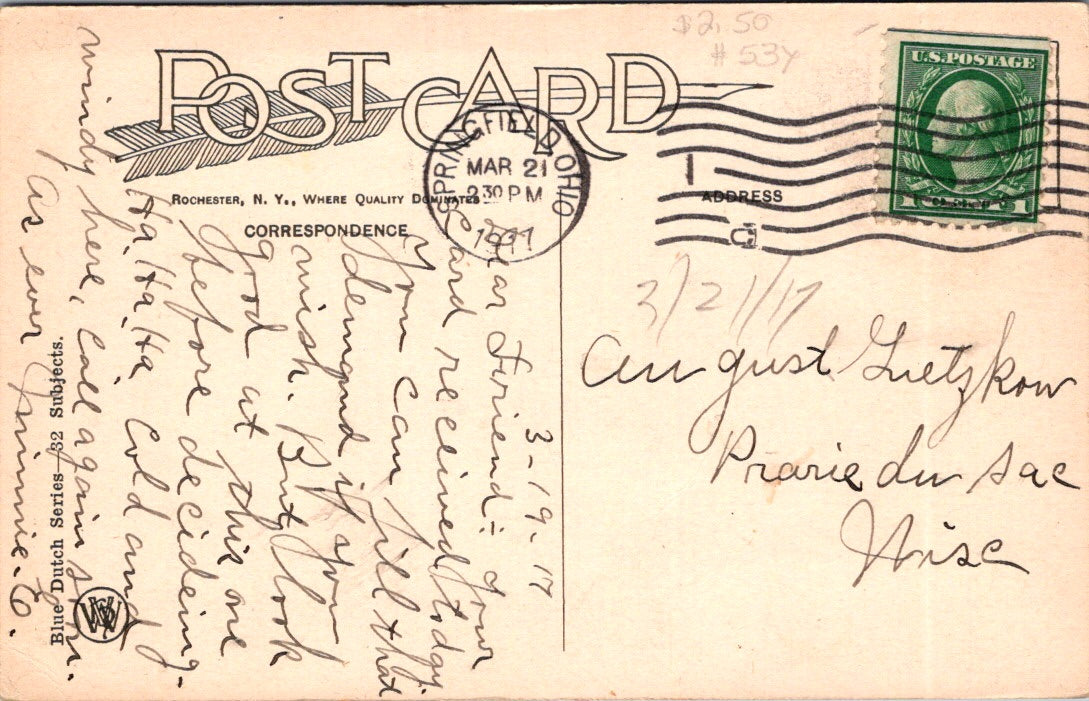 $2.50
# 534
POST CARD
U.S. POSTAGE
1 1
SPRINGFIELD, OHIO
MAR 21
2 30 PM
1917
1
ROCHESTER, N. Y., WHERE QUALITY DOMINATES
ADDRESS
CORRESPONDENCE
3/21/17
August Lietzkow
Prarie du Sac
Wisc
3-19-17
Dear Friend:- your
Card received today.
You can fill that
demand if you
wish. But look
good at this one
before deciding.
Ha Ha Ha Ha, Cold and
windy here, Call again
As ever Minnie.
Blue Dutch Series—32 Subjects.